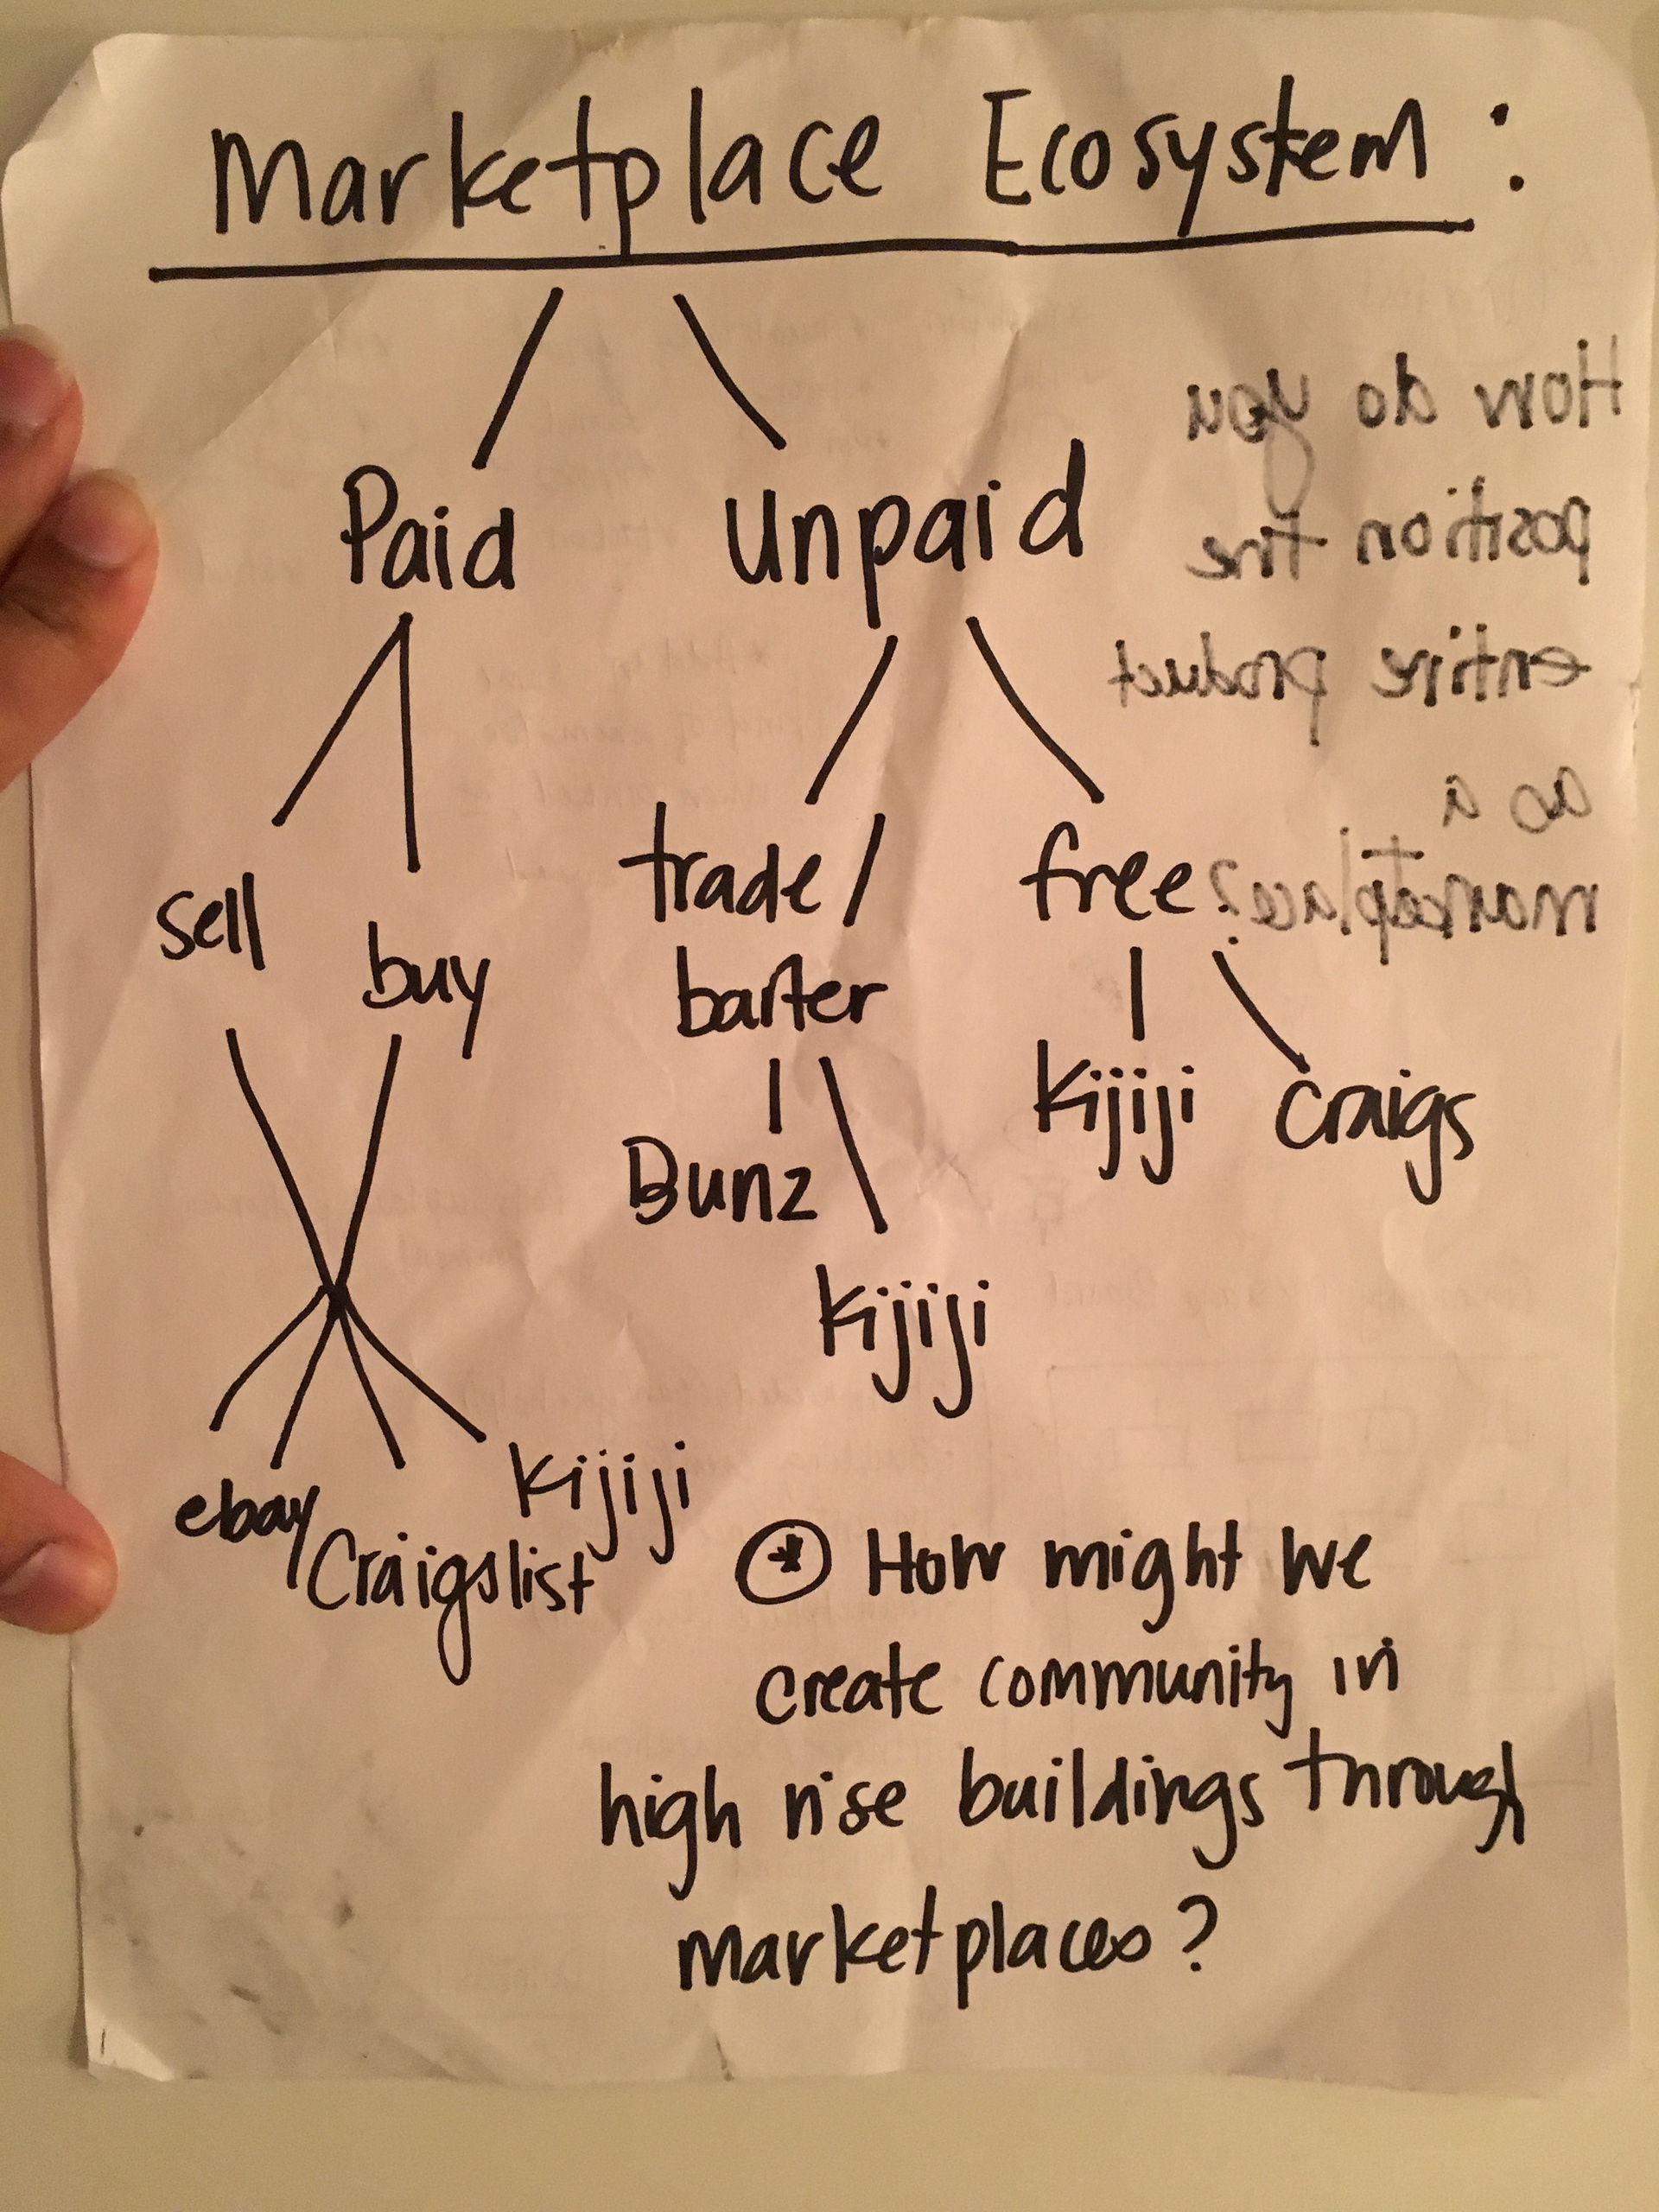 Marketplace Ecosystem:
Paid
unpaid
How do you
position the
entire product
as a
marketplace?
sell
buy
trade/
barter
free
Kijiji
Craigs
Bunz
Kijiji
ebay
Craigslist
Kijiji
* How might we
create community in
high rise buildings through
marketplaces?